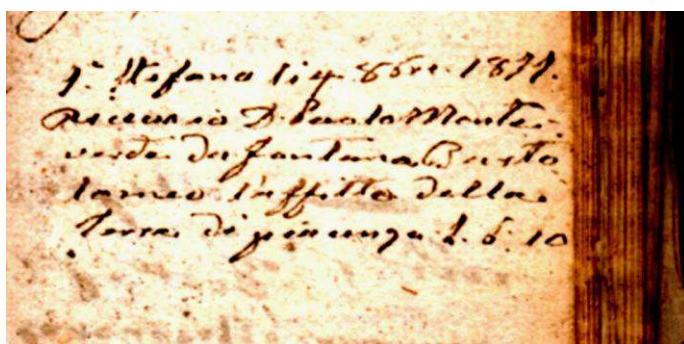 S. Stefano li 4. 8bre. 1877.
ricevo io D. Paolo Monte-
verde da Fontana Barto
lomeo l'affitto della
terra di L. 6. 10